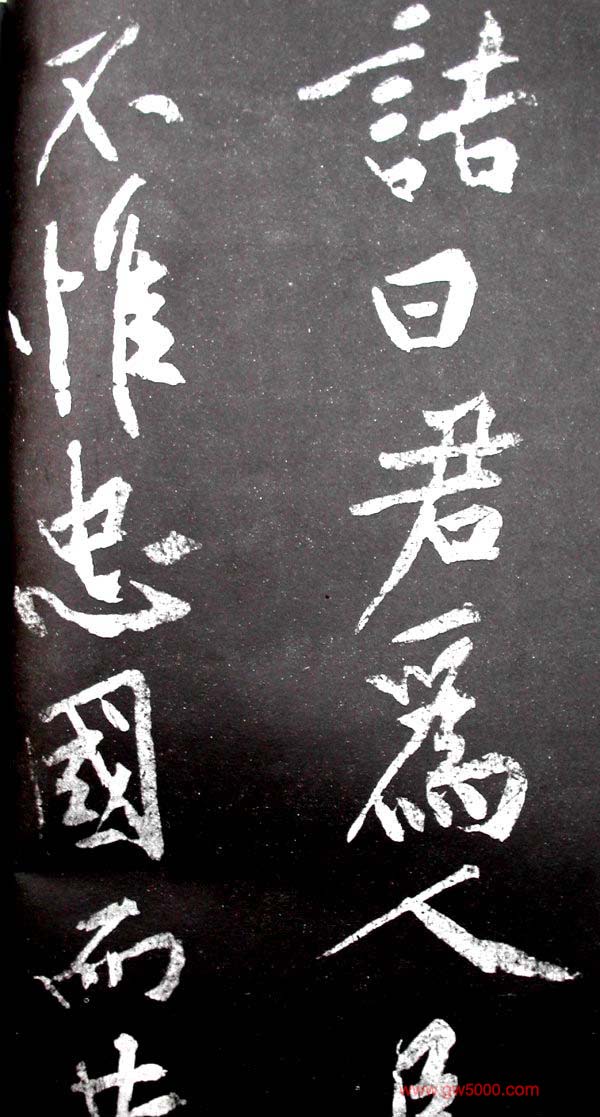 諸曰君爲人
不惟忠國而
www.gw5000.com